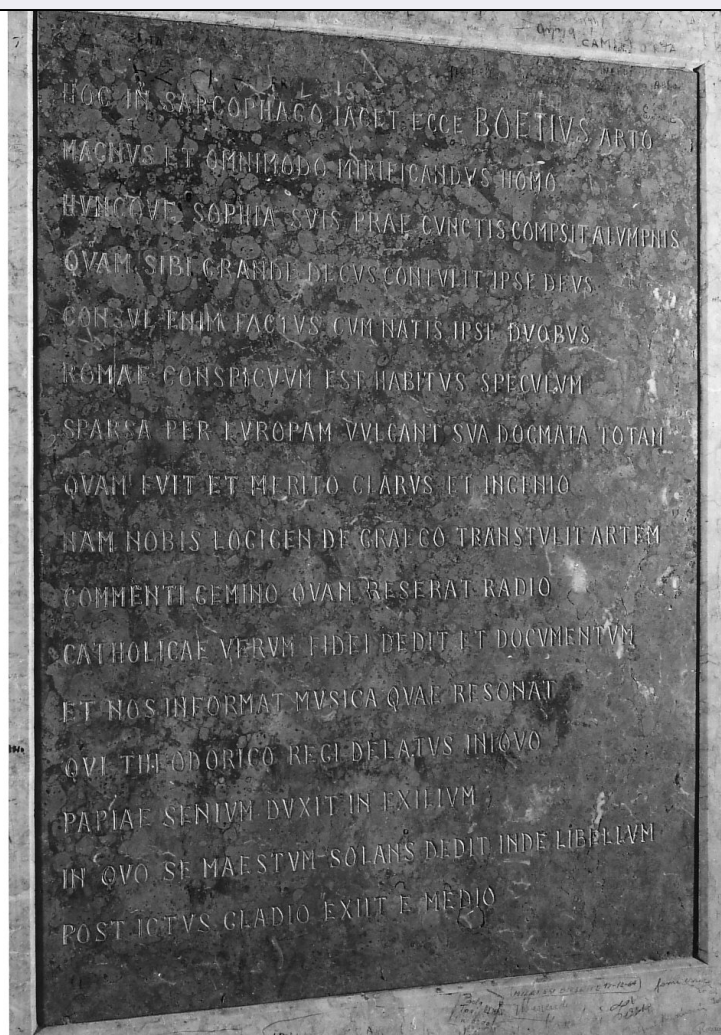 HOC IN SARCOPHAGO IACET ECCE BOETIVS ARTO
MAGNVS ET OMNIMODO MIRIFICANDVS HOMO
HVNCQVE SOPHIA SVIS PRAE CVNCTIS COMPSIT ALVMPNIS
QVAM SIBI GRANDE DECVS CONTVLIT IPSE DEVS
CONSVL ENIM FACTVS CVM NATIS IPSE DVOBVS
ROMAE CONSPICVVM EST HABITVS SPECVLVM
SPARSA PER EVROPAM VVLGANT SVA DOGMATA TOTAM
QVAM FVIT ET MERITO CLARVS ET INGENIO
NAM NOBIS LOGIGEN DE GRAECO TRANSTVLIT ARTEM
COMMENTI GEMINO QVAM RESERAT RADIO
CATHOLICAE VERVM FIDEI DEDIT ET DOCVMENTVM
ET NOS INFORMAT MVSICA QVAE RESONAT
QVI THEODORICO REGI DELATVS INIQVO
PAPIAE SENIVM DVXIT IN EXILIVM
IN QVO SE MAESTVM SOLANS DEDIT INDE LIBELLVM
POST ICTVS GLADIO EXIIT E MEDIO